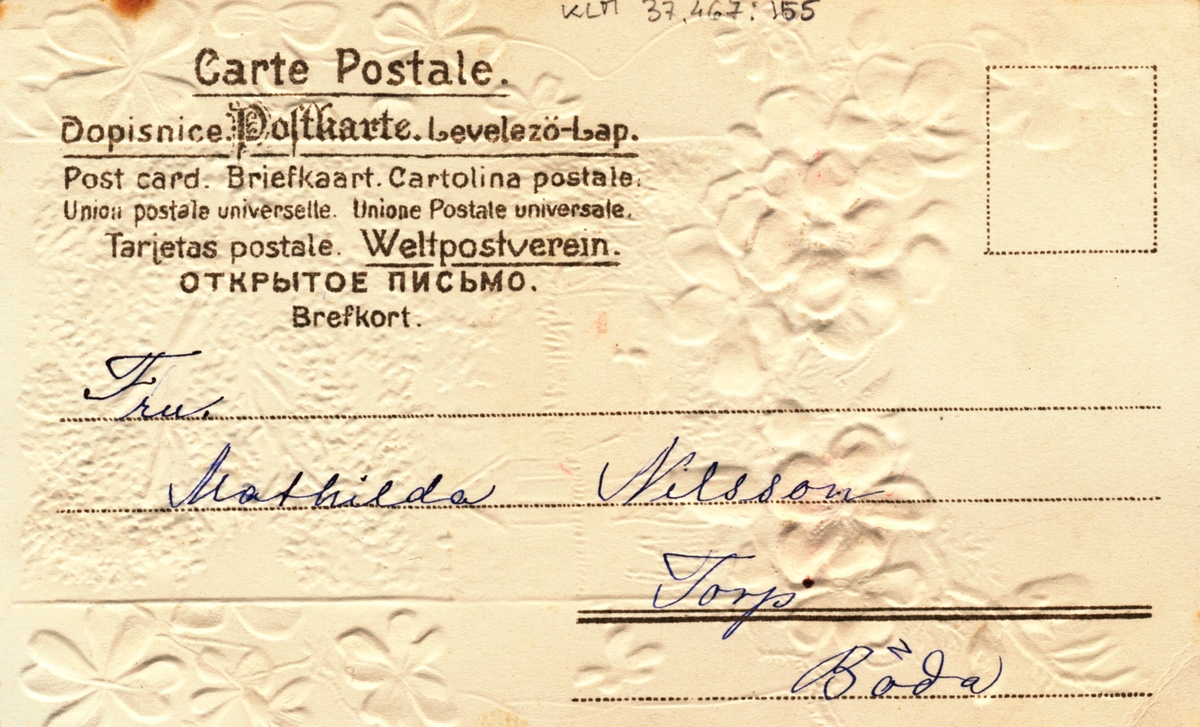 KLM 37.467:155
Carte Postale.
Dopisnice. Postkarte. Levelező-Lap.
Post card. Briefkaart. Cartolina postale.
Union postale universelle. Unione Postale universale.
Tarjetas postale. Weltpostverein.
ОТКРЫТОЕ ПИСЬМО.
Brefkort.
Fru.
Mathilda Nilsson
Torp
Böda